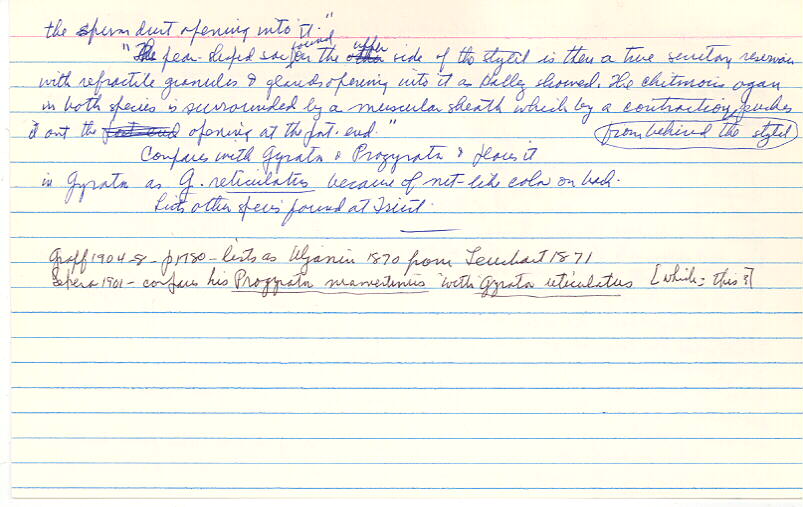 the sperm duct opening into it."
"The pear-shaped sac found on the upper side of the stylet is then a true secretory reservoir
with refractile granules & glands opening into it as Hallez showed. The chitinous organ
in both species is surrounded by a muscular sheath which by a contraction pushes
it out the opening at the post. end." from behind the stylet
Compares with Gyrator & Progyrator & places it
in Gyrator as G. reticulatus because of net-like color on back.
Lists other species found at Triest.
Graff 1904-8 - p1780 - lists as Uljanin 1870 from Leuckart 1871
1901 - compares his Progyrator mamertinus with Gyrator reticulatus [which = this?]